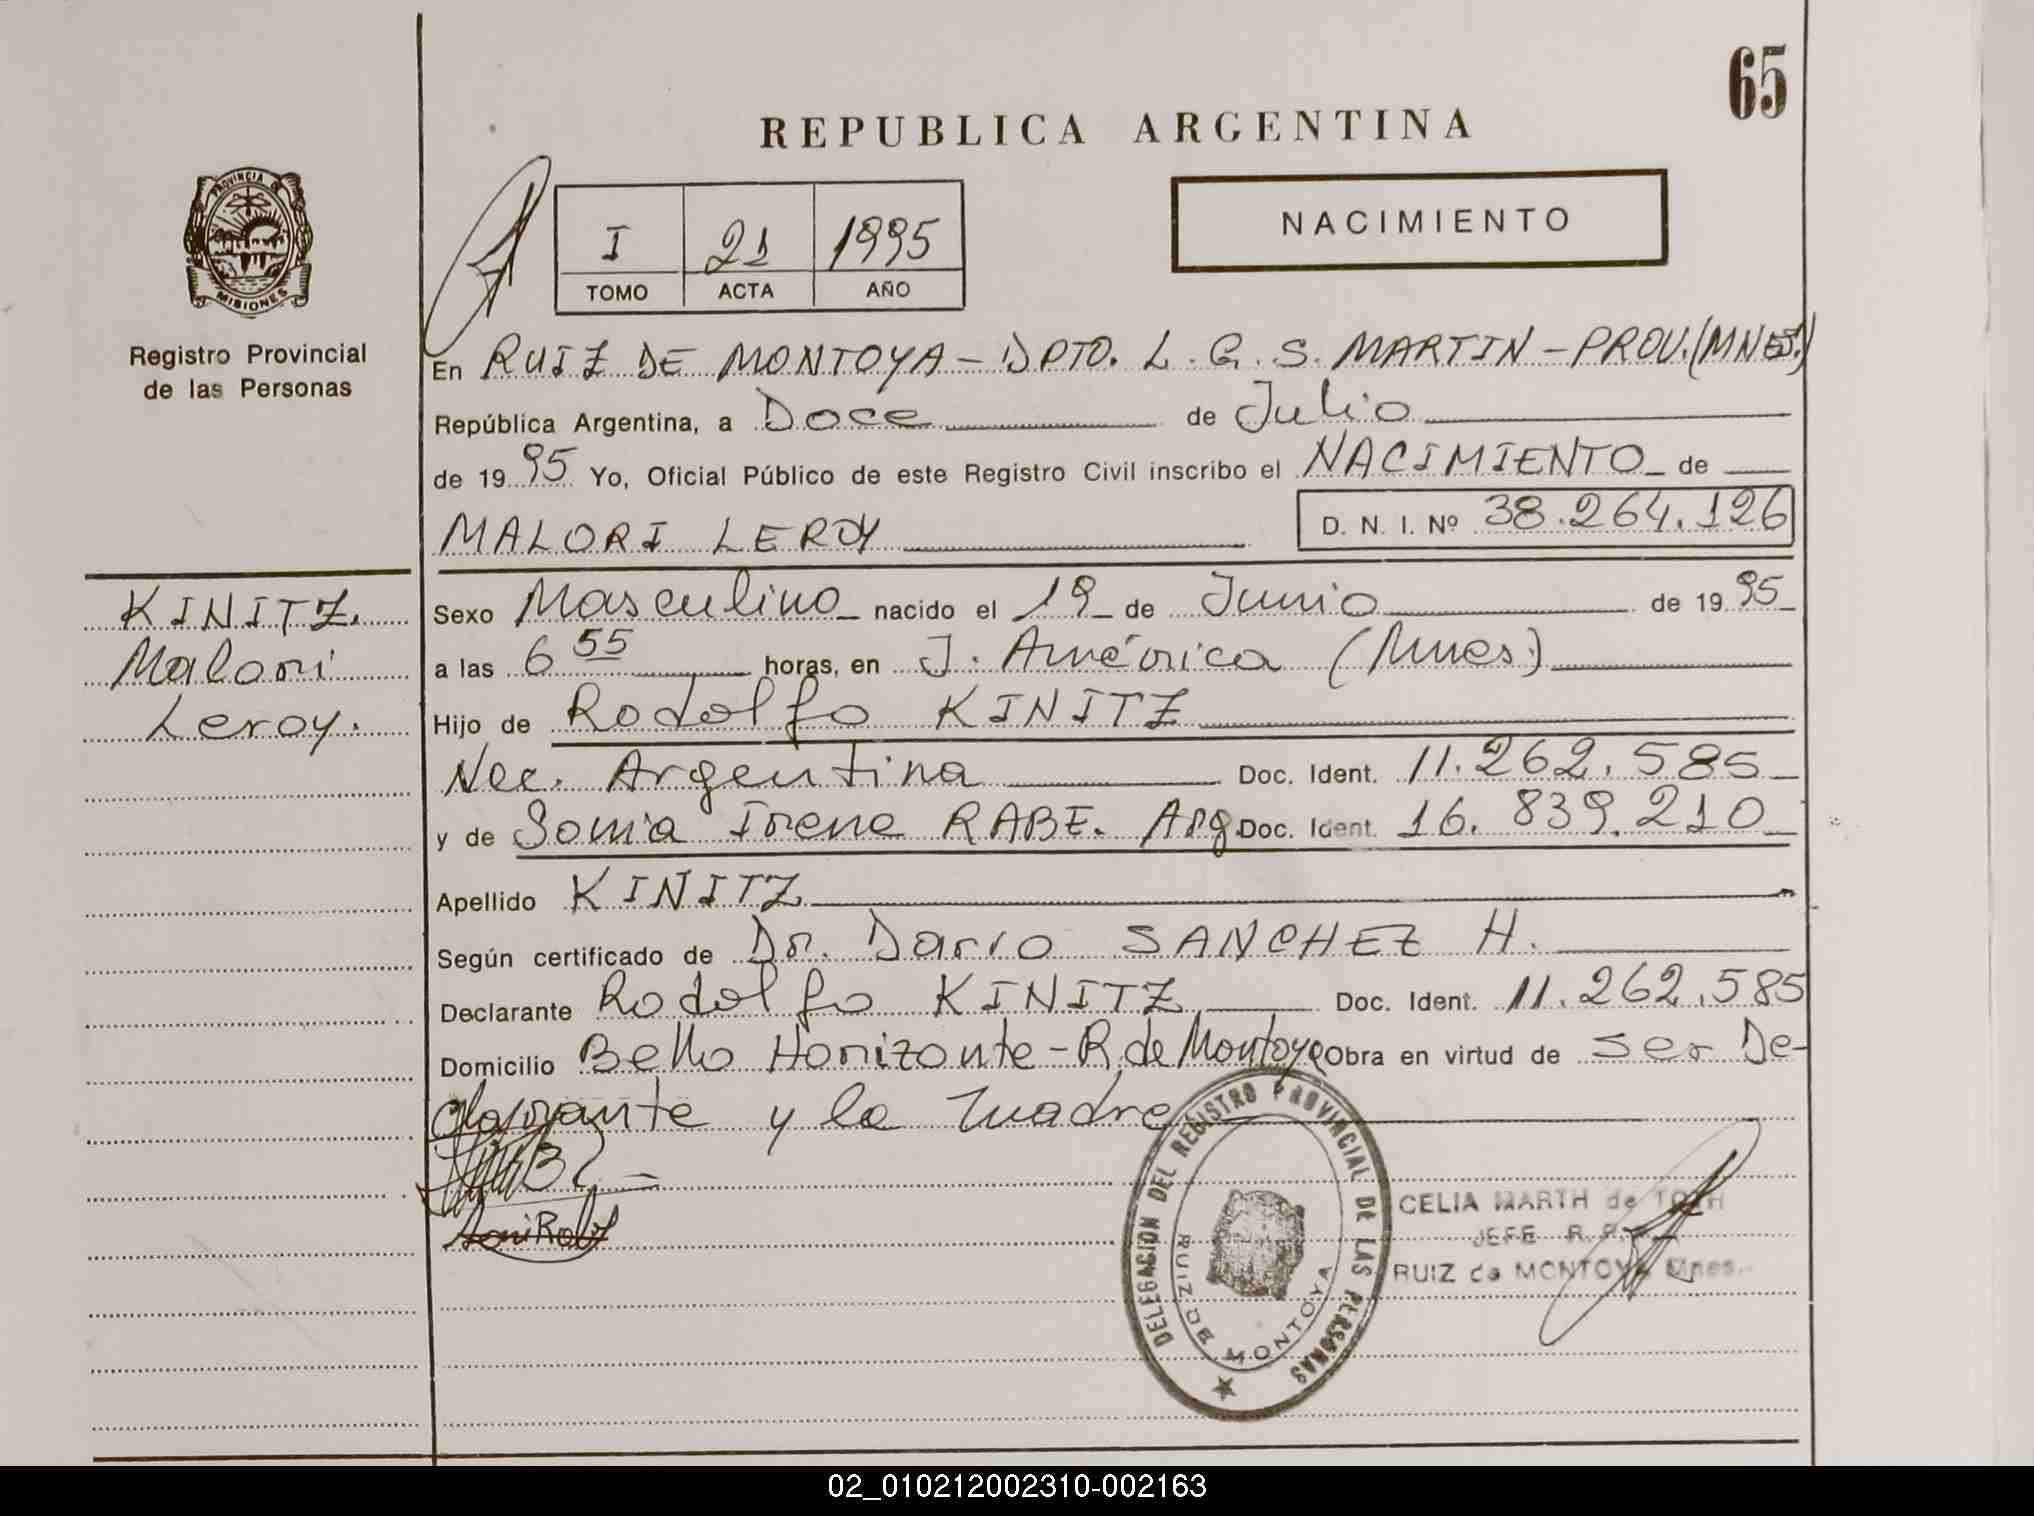 65
REPUBLICA ARGENTINA
PROVINCIA DE
MISIONES
Registro Provincial
de las Personas
I 21 1995
TOMO ACTA AÑO
NACIMIENTO
En RUIZ DE MONTOYA - DPTO. L. G. S. MARTIN - PROV. (MNES.)
República Argentina, a Doce de Julio
de 1995 Yo, Oficial Público de este Registro Civil inscribo el NACIMIENTO de
MALORI LEROY D. N. I. Nº 38.264.126
KINITZ.
Malori
Leroy.
Sexo Masculino nacido el 19 de Junio de 1995
a las 6 55 horas, en J. América (Mnes.)
Hijo de Rodolfo KINITZ
Nac. Argentina Doc. Ident. 11.262.585
y de Sonia Irene RABE. Arg. Doc. Ident. 16.839.210
Apellido KINITZ
Según certificado de Dr. Dario SANCHEZ H.
Declarante Rodolfo KINITZ Doc. Ident. 11.262.585
Domicilio Bello Horizonte - R. de Montoya Obra en virtud de ser De-
clarante y la madre
DELEGACION DEL REGISTRO PROVINCIAL DE LAS PERSONAS
RUIZ DE MONTOYA
CELIA MARTH de TOTH
JEFE R. P.
RUIZ de MONTOYA Mnes.
02_010212002310-002163